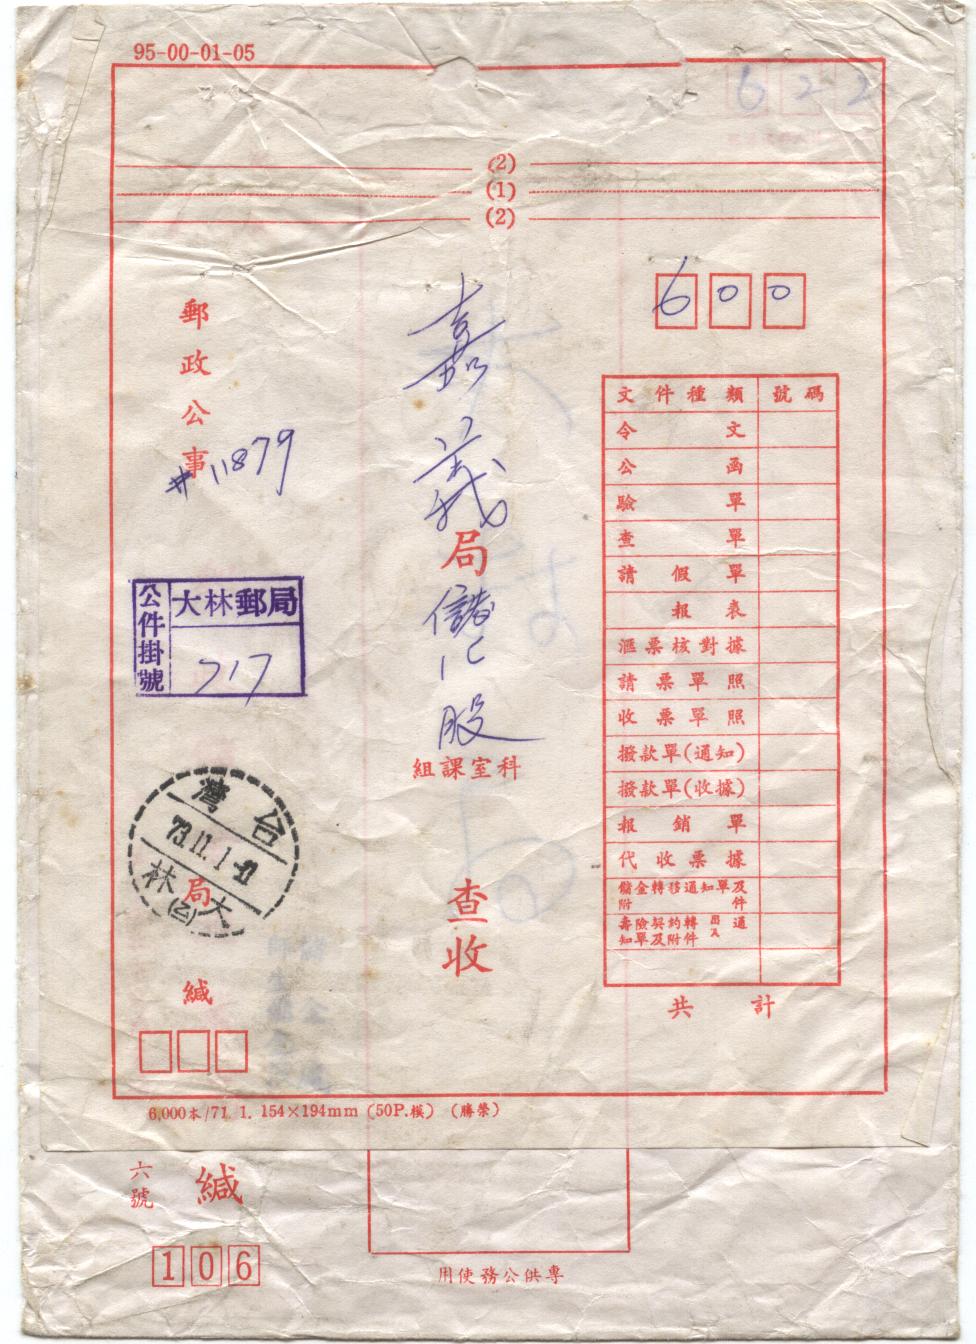 95-00-01-05
622
(2)
(1)
(2)
600
郵政公事
#11879
嘉義局儲匯股
組課室科
查收
公件掛號
大林郵局
717
台灣
73.11.1
大林
(乙)
局
緘
文件種類 號碼
令文
公函
驗單
查單
請假單
報表
滙票核對據
請票單照
收票單照
撥款單(通知)
撥款單(收據)
報銷單
代收票據
儲金轉移通知單及附件
壽險契約轉出入通知單及附件
共計
6,000本/71. 1. 154×194mm (50P.模) (勝榮)
六號
緘
106
用使務公供專